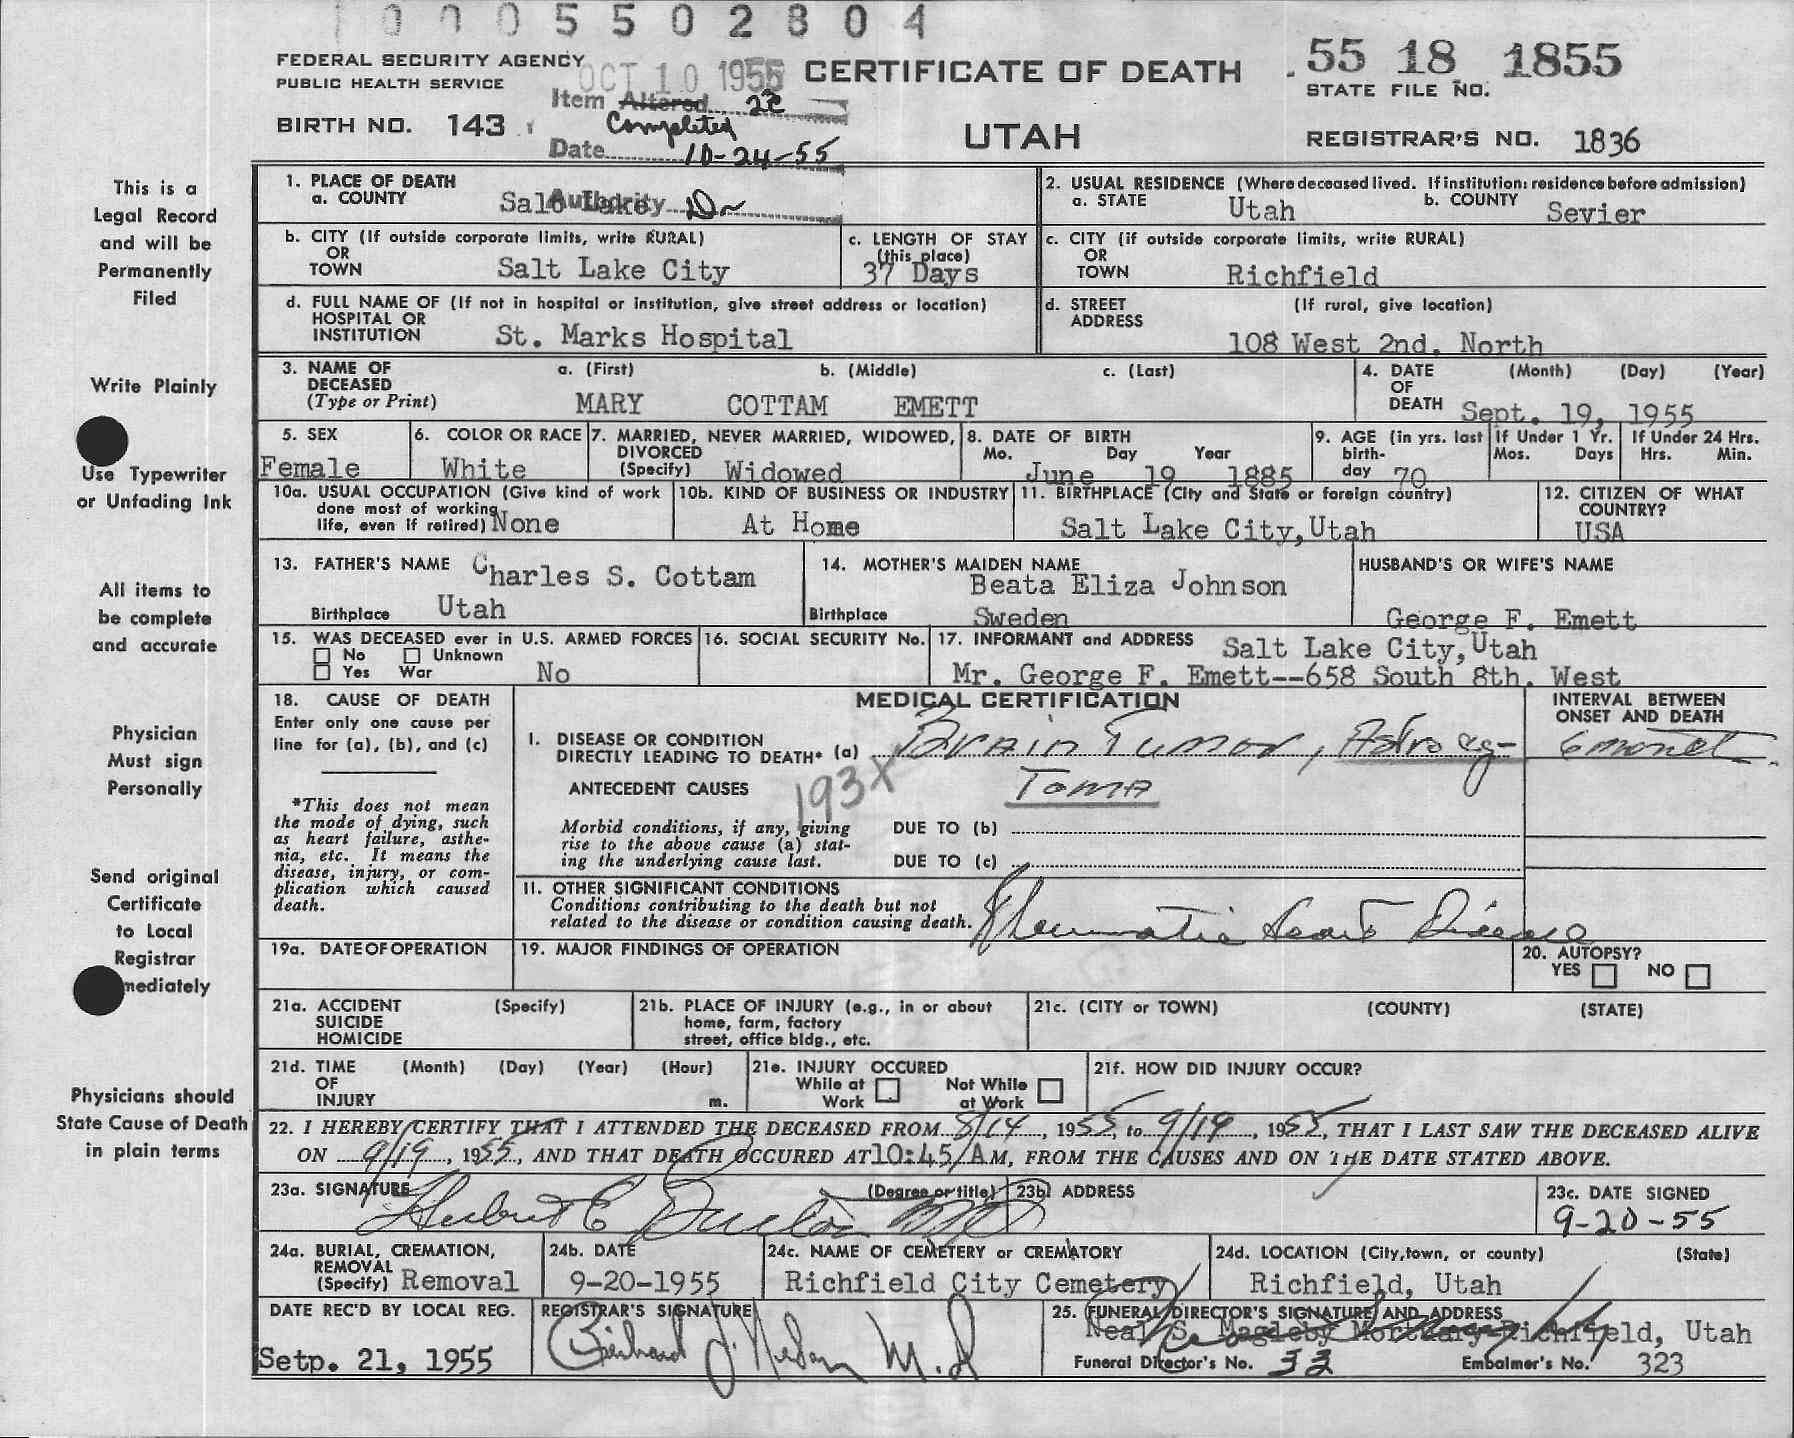 0005502804
FEDERAL SECURITY AGENCY
PUBLIC HEALTH SERVICE
OCT 10 1955
CERTIFICATE OF DEATH
55 18 1855
STATE FILE NO.
Item Altered 22
Completed
BIRTH NO. 143
UTAH
REGISTRAR'S NO. 1836
Date 10-24-55
Authority
This is a
Legal Record
and will be
Permanently
Filed
Write Plainly
Use Typewriter
or Unfading Ink
All items to
be complete
and accurate
Physician
Must sign
Personally
Send original
Certificate
to Local
Registrar
mediately
Physicians should
State Cause of Death
in plain terms
1. PLACE OF DEATH
a. COUNTY Salt Lake
2. USUAL RESIDENCE (Where deceased lived. If institution: residence before admission)
a. STATE Utah b. COUNTY Sevier
b. CITY (If outside corporate limits, write RURAL)
OR
TOWN Salt Lake City
c. LENGTH OF STAY
(this place)
37 Days
c. CITY (if outside corporate limits, write RURAL)
OR
TOWN Richfield
d. FULL NAME OF (If not in hospital or institution, give street address or location)
HOSPITAL OR
INSTITUTION St. Marks Hospital
d. STREET (If rural, give location)
ADDRESS
108 West 2nd. North
3. NAME OF a. (First) b. (Middle) c. (Last)
DECEASED
(Type or Print) MARY COTTAM EMETT
4. DATE (Month) (Day) (Year)
OF
DEATH Sept. 19, 1955
5. SEX
Female
6. COLOR OR RACE
White
7. MARRIED, NEVER MARRIED, WIDOWED,
DIVORCED
(Specify) Widowed
8. DATE OF BIRTH
Mo. Day Year
June 19 1885
9. AGE (in yrs. last
birth-
day 70
If Under 1 Yr.
Mos. Days
If Under 24 Hrs.
Hrs. Min.
10a. USUAL OCCUPATION (Give kind of work
done most of working
life, even if retired) None
10b. KIND OF BUSINESS OR INDUSTRY
At Home
11. BIRTHPLACE (City and State or foreign country)
Salt Lake City, Utah
12. CITIZEN OF WHAT
COUNTRY?
USA
13. FATHER'S NAME Charles S. Cottam
Birthplace Utah
14. MOTHER'S MAIDEN NAME
Beata Eliza Johnson
Birthplace Sweden
HUSBAND'S OR WIFE'S NAME
George F. Emett
15. WAS DECEASED ever in U.S. ARMED FORCES
No Unknown
Yes War No
16. SOCIAL SECURITY No.
17. INFORMANT and ADDRESS Salt Lake City, Utah
Mr. George F. Emett--658 South 8th. West
18. CAUSE OF DEATH
Enter only one cause per
line for (a), (b), and (c)
*This does not mean
the mode of dying, such
as heart failure, asthe-
nia, etc. It means the
disease, injury, or com-
plication which caused
death.
MEDICAL CERTIFICATION
INTERVAL BETWEEN
ONSET AND DEATH
I. DISEASE OR CONDITION
DIRECTLY LEADING TO DEATH* (a) Brain Tumor,
Toma
193X
ANTECEDENT CAUSES
Morbid conditions, if any, giving
rise to the above cause (a) stat-
ing the underlying cause last.
DUE TO (b)
DUE TO (c)
II. OTHER SIGNIFICANT CONDITIONS
Conditions contributing to the death but not
related to the disease or condition causing death. Rheumatic Heart Disease
19a. DATE OF OPERATION
19. MAJOR FINDINGS OF OPERATION
20. AUTOPSY?
YES NO
21a. ACCIDENT (Specify)
SUICIDE
HOMICIDE
21b. PLACE OF INJURY (e.g., in or about
home, farm, factory
street, office bldg., etc.
21c. (CITY or TOWN) (COUNTY) (STATE)
21d. TIME (Month) (Day) (Year) (Hour)
OF
INJURY m.
21e. INJURY OCCURED
While at Not While
Work at Work
21f. HOW DID INJURY OCCUR?
22. I HEREBY CERTIFY THAT I ATTENDED THE DECEASED FROM 8/14, 1955, to 9/19, 1955, THAT I LAST SAW THE DECEASED ALIVE
ON 9/19, 1955, AND THAT DEATH OCCURED AT 10:45/AM, FROM THE CAUSES AND ON THE DATE STATED ABOVE.
23a. SIGNATURE (Degree or title)
23b. ADDRESS
23c. DATE SIGNED
9-20-55
24a. BURIAL, CREMATION,
REMOVAL
(Specify) Removal
24b. DATE
9-20-1955
24c. NAME OF CEMETERY or CREMATORY
Richfield City Cemetery
24d. LOCATION (City, town, or county) (State)
Richfield, Utah
DATE REC'D BY LOCAL REG.
Setp. 21, 1955
REGISTRAR'S SIGNATURE
25. FUNERAL DIRECTOR'S SIGNATURE AND ADDRESS
Neal S. Magleby Mortuary Richfield, Utah
Funeral Director's No. 33 Embalmer's No. 323